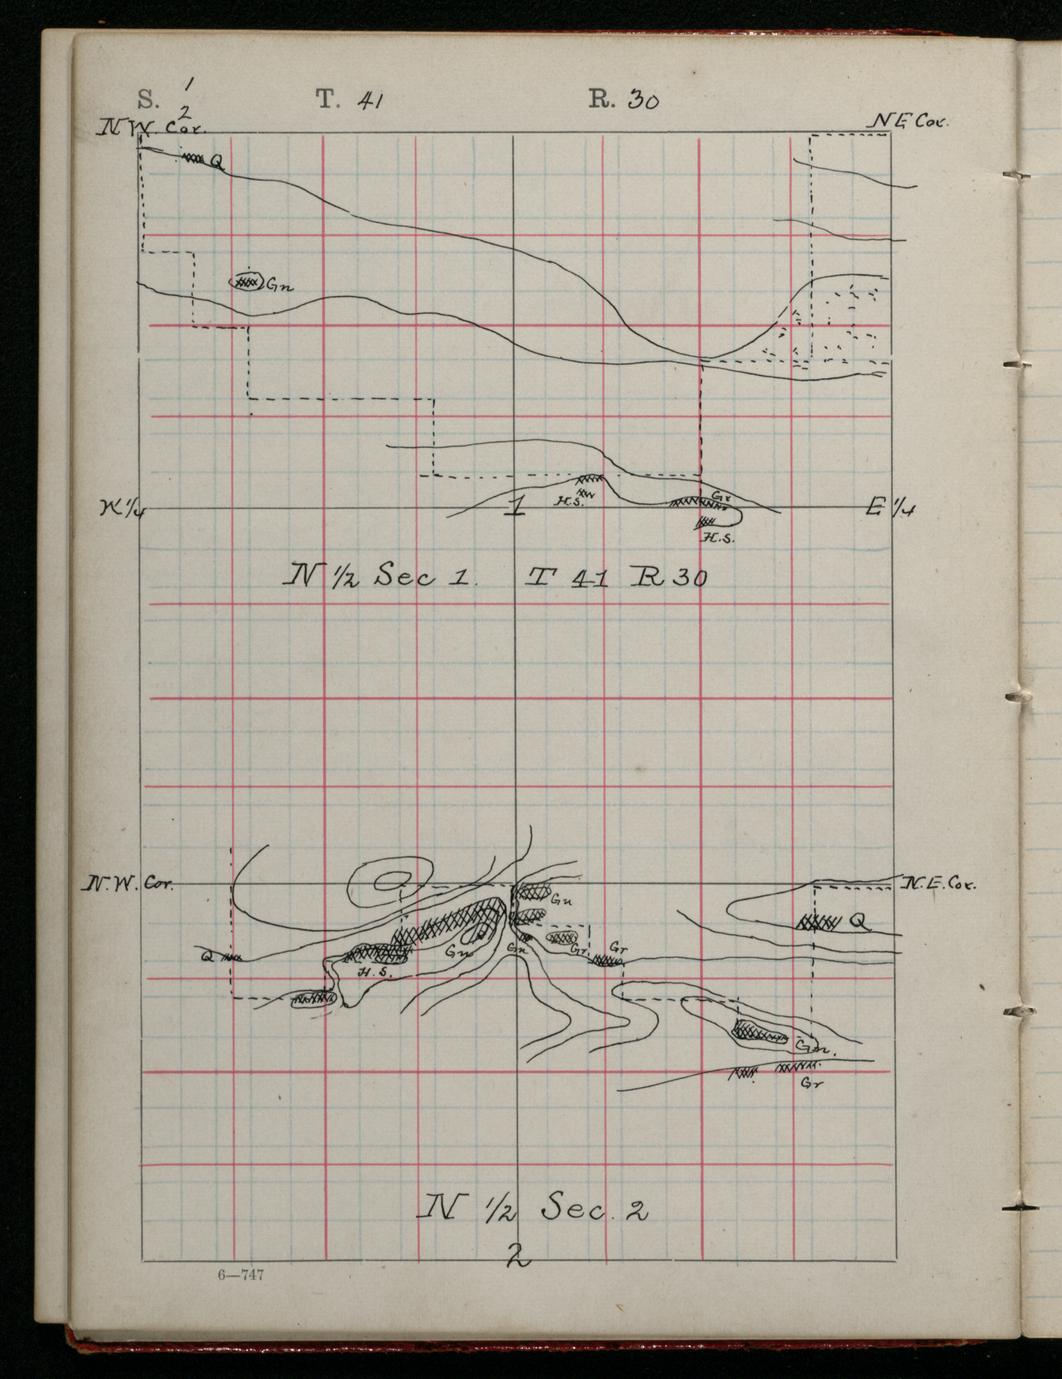 S. 1 T. 41 R. 30
2
N W. Cor. N E Cor.
Q
Gn
W 1/4 H.S. 1 Gr E 1/4
H.S.
N 1/2 Sec 1. T 41 R 30
N. W. Cor. N. E. Cor.
Gn
Q
Q H.S. Gn Gn Gr Gr
Gn.
Gr
N 1/2 Sec. 2
2
6—747